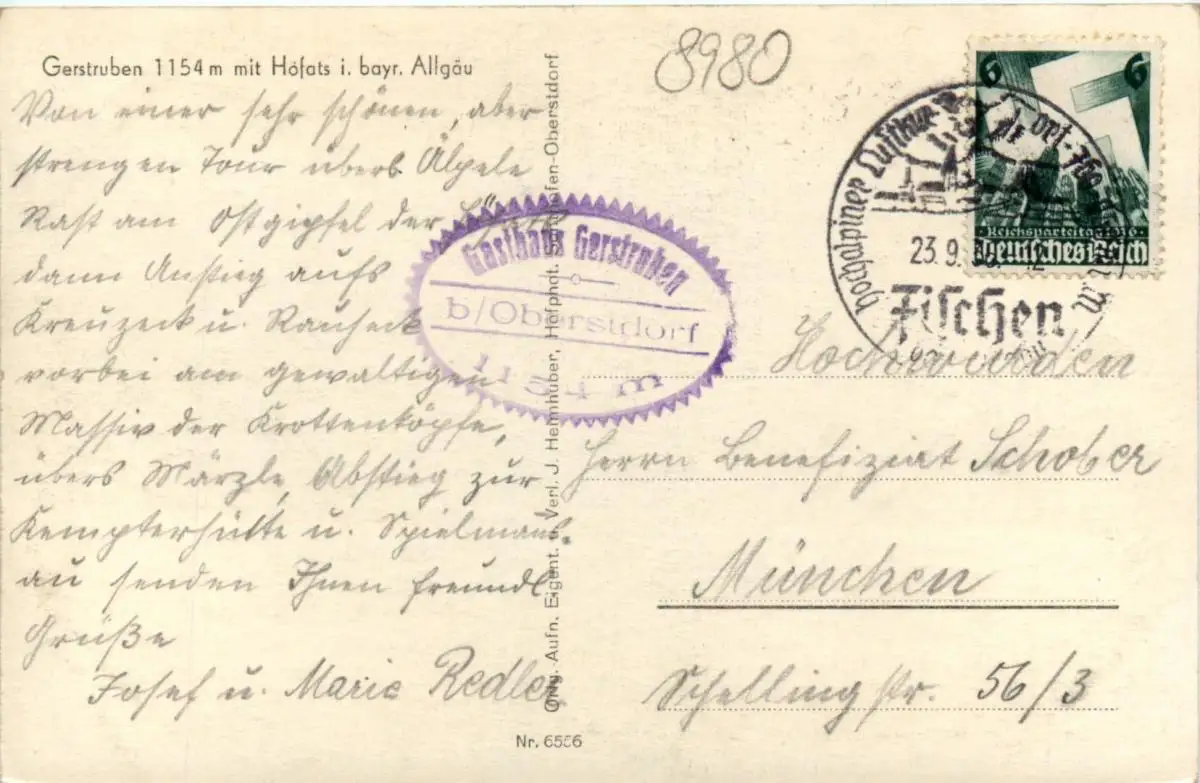 Gerstruben 1154 m mit Höfats i. bayr. Allgäu
Von einer sehr schönen, aber
strengen Tour übers Älpele
Rast am Ostgipfel der Höfats
dann Anstieg aufs
Kreuzeck u. Rauheck
vorbei am gewaltigen
Massiv der Krottenköpfe,
übers Märzle, Abstieg zur
Kempterhütte u. Spielmanns-
au senden Ihnen freundl.
Grüße
Josef u. Marie Redler
Nr. 6556
Orig. Aufn. Eigent. u. Verl. J. Heimhuber, Hofphot. Sonthofen-Oberstdorf
Gasthaus Gerstruben
b/Oberstdorf
1154 m
8980
6 6
Reichsparteitag 1936
Deutsches Reich
hochalpiner Luftkur
ort-760
23.9.
Fischen
Hochwürden
Herrn Benefiziat Schober
München
Schellingstr. 56/3